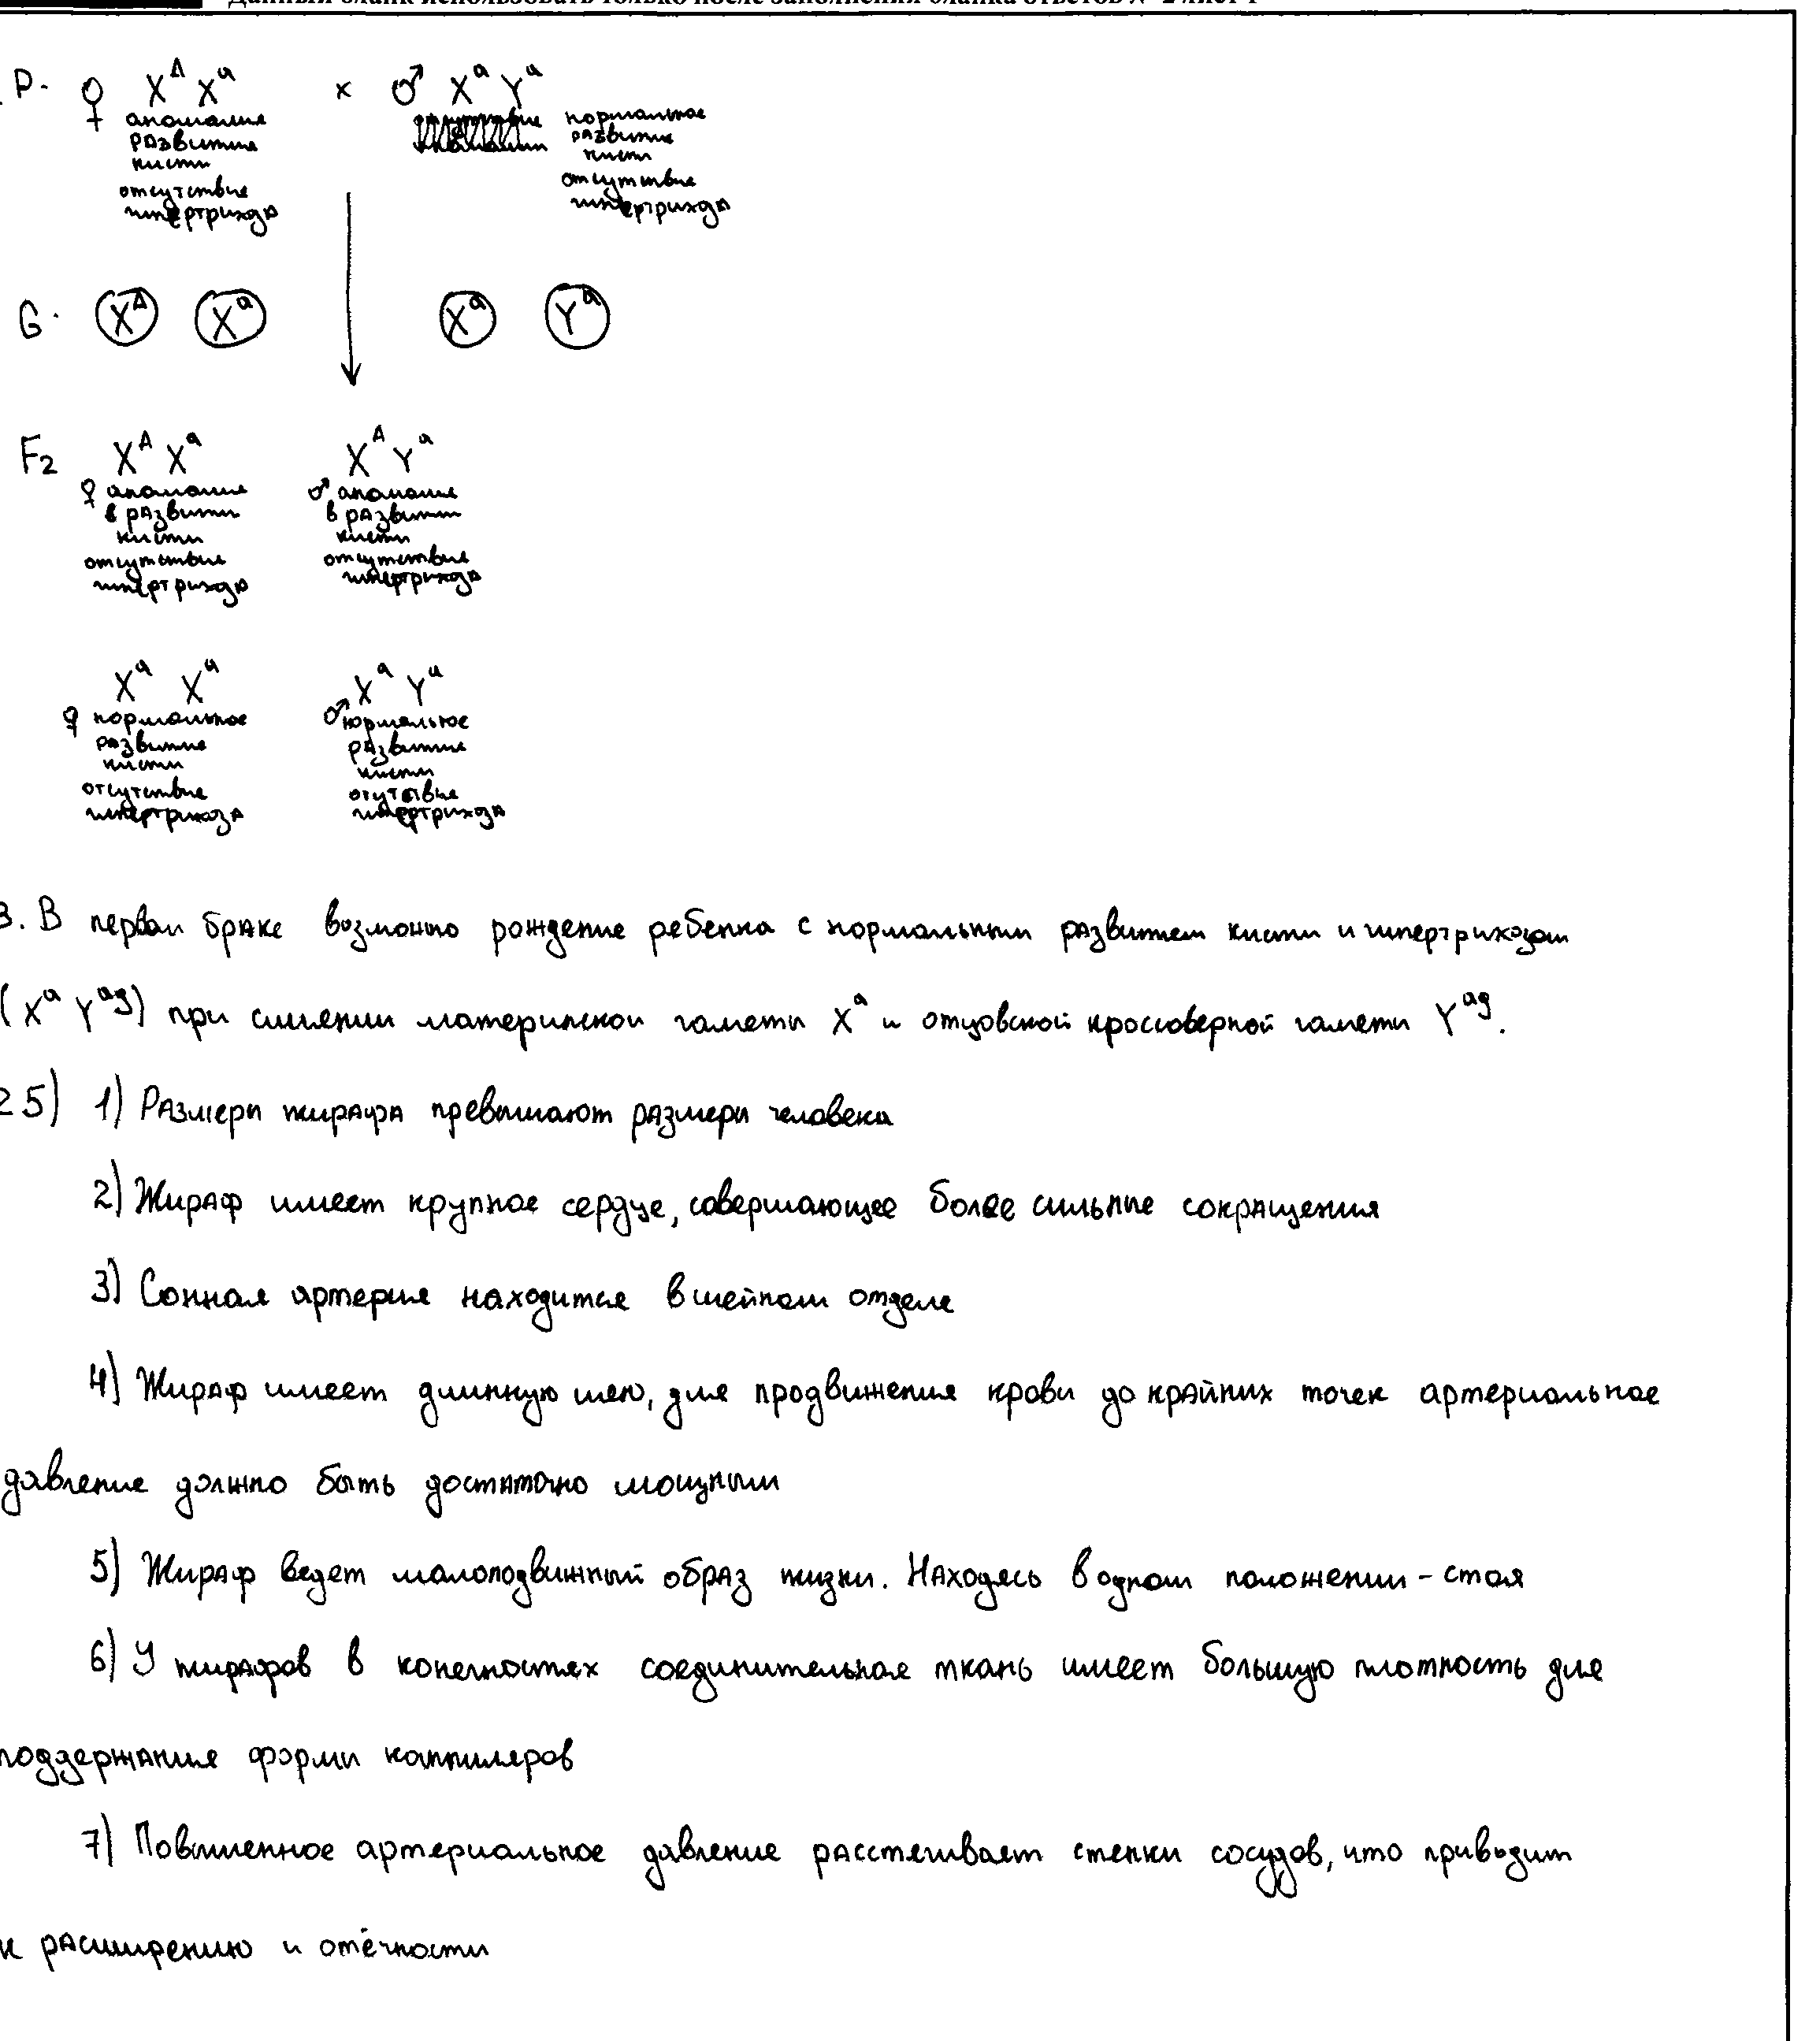 Данный бланк использовать только после заполнения бланка ответов № 2 лист 1
P. ♀ X^A X^a x ♂ X^a Y^a
аномалия развития кисти отсутствие гипертрихоза
нормальное развитие кисти отсутствие гипертрихоза
G. X^A X^a X^a Y^a
F2 X^A X^a X^A Y^a
♀ аномалия в развити кисти отсутствие гипертрихоза
♂ аномалия в развити кисти отсутствие гипертрихоза
X^a X^a X^a Y^a
♀ нормальное развитие кисти отсутствие гипертрихоза
♂ нормальное развитие кисти отутсвие гипертрихоза
3. В первом браке возможно рождение ребенка с нормальным развитем кисти и гипертрихозом
(X^a Y^ag) при слиянии материнской гаметы X^a и отцовской кроссоверной гаметы Y^ag.
25) 1) Размеры жирафа превышают размеры человека
2) Жираф имеет крупное сердце, совершающее более сильные сокращения
3) Сонная артерия находится в шейном отделе
4) Жираф имеет длинную шею, для продвижения крови до крайних точек артериальное
давление должно быть достаточно мощным
5) Жираф ведет малоподвижный образ жизни. Находясь в одном положении - стоя
6) У жирафов в конечностях соединительная ткань имеет большую плотность для
поддержания формы каппиляров
7) Повышенное артериальное давление расстягивает стенки сосудов, что приводит
к расширению и отёчности